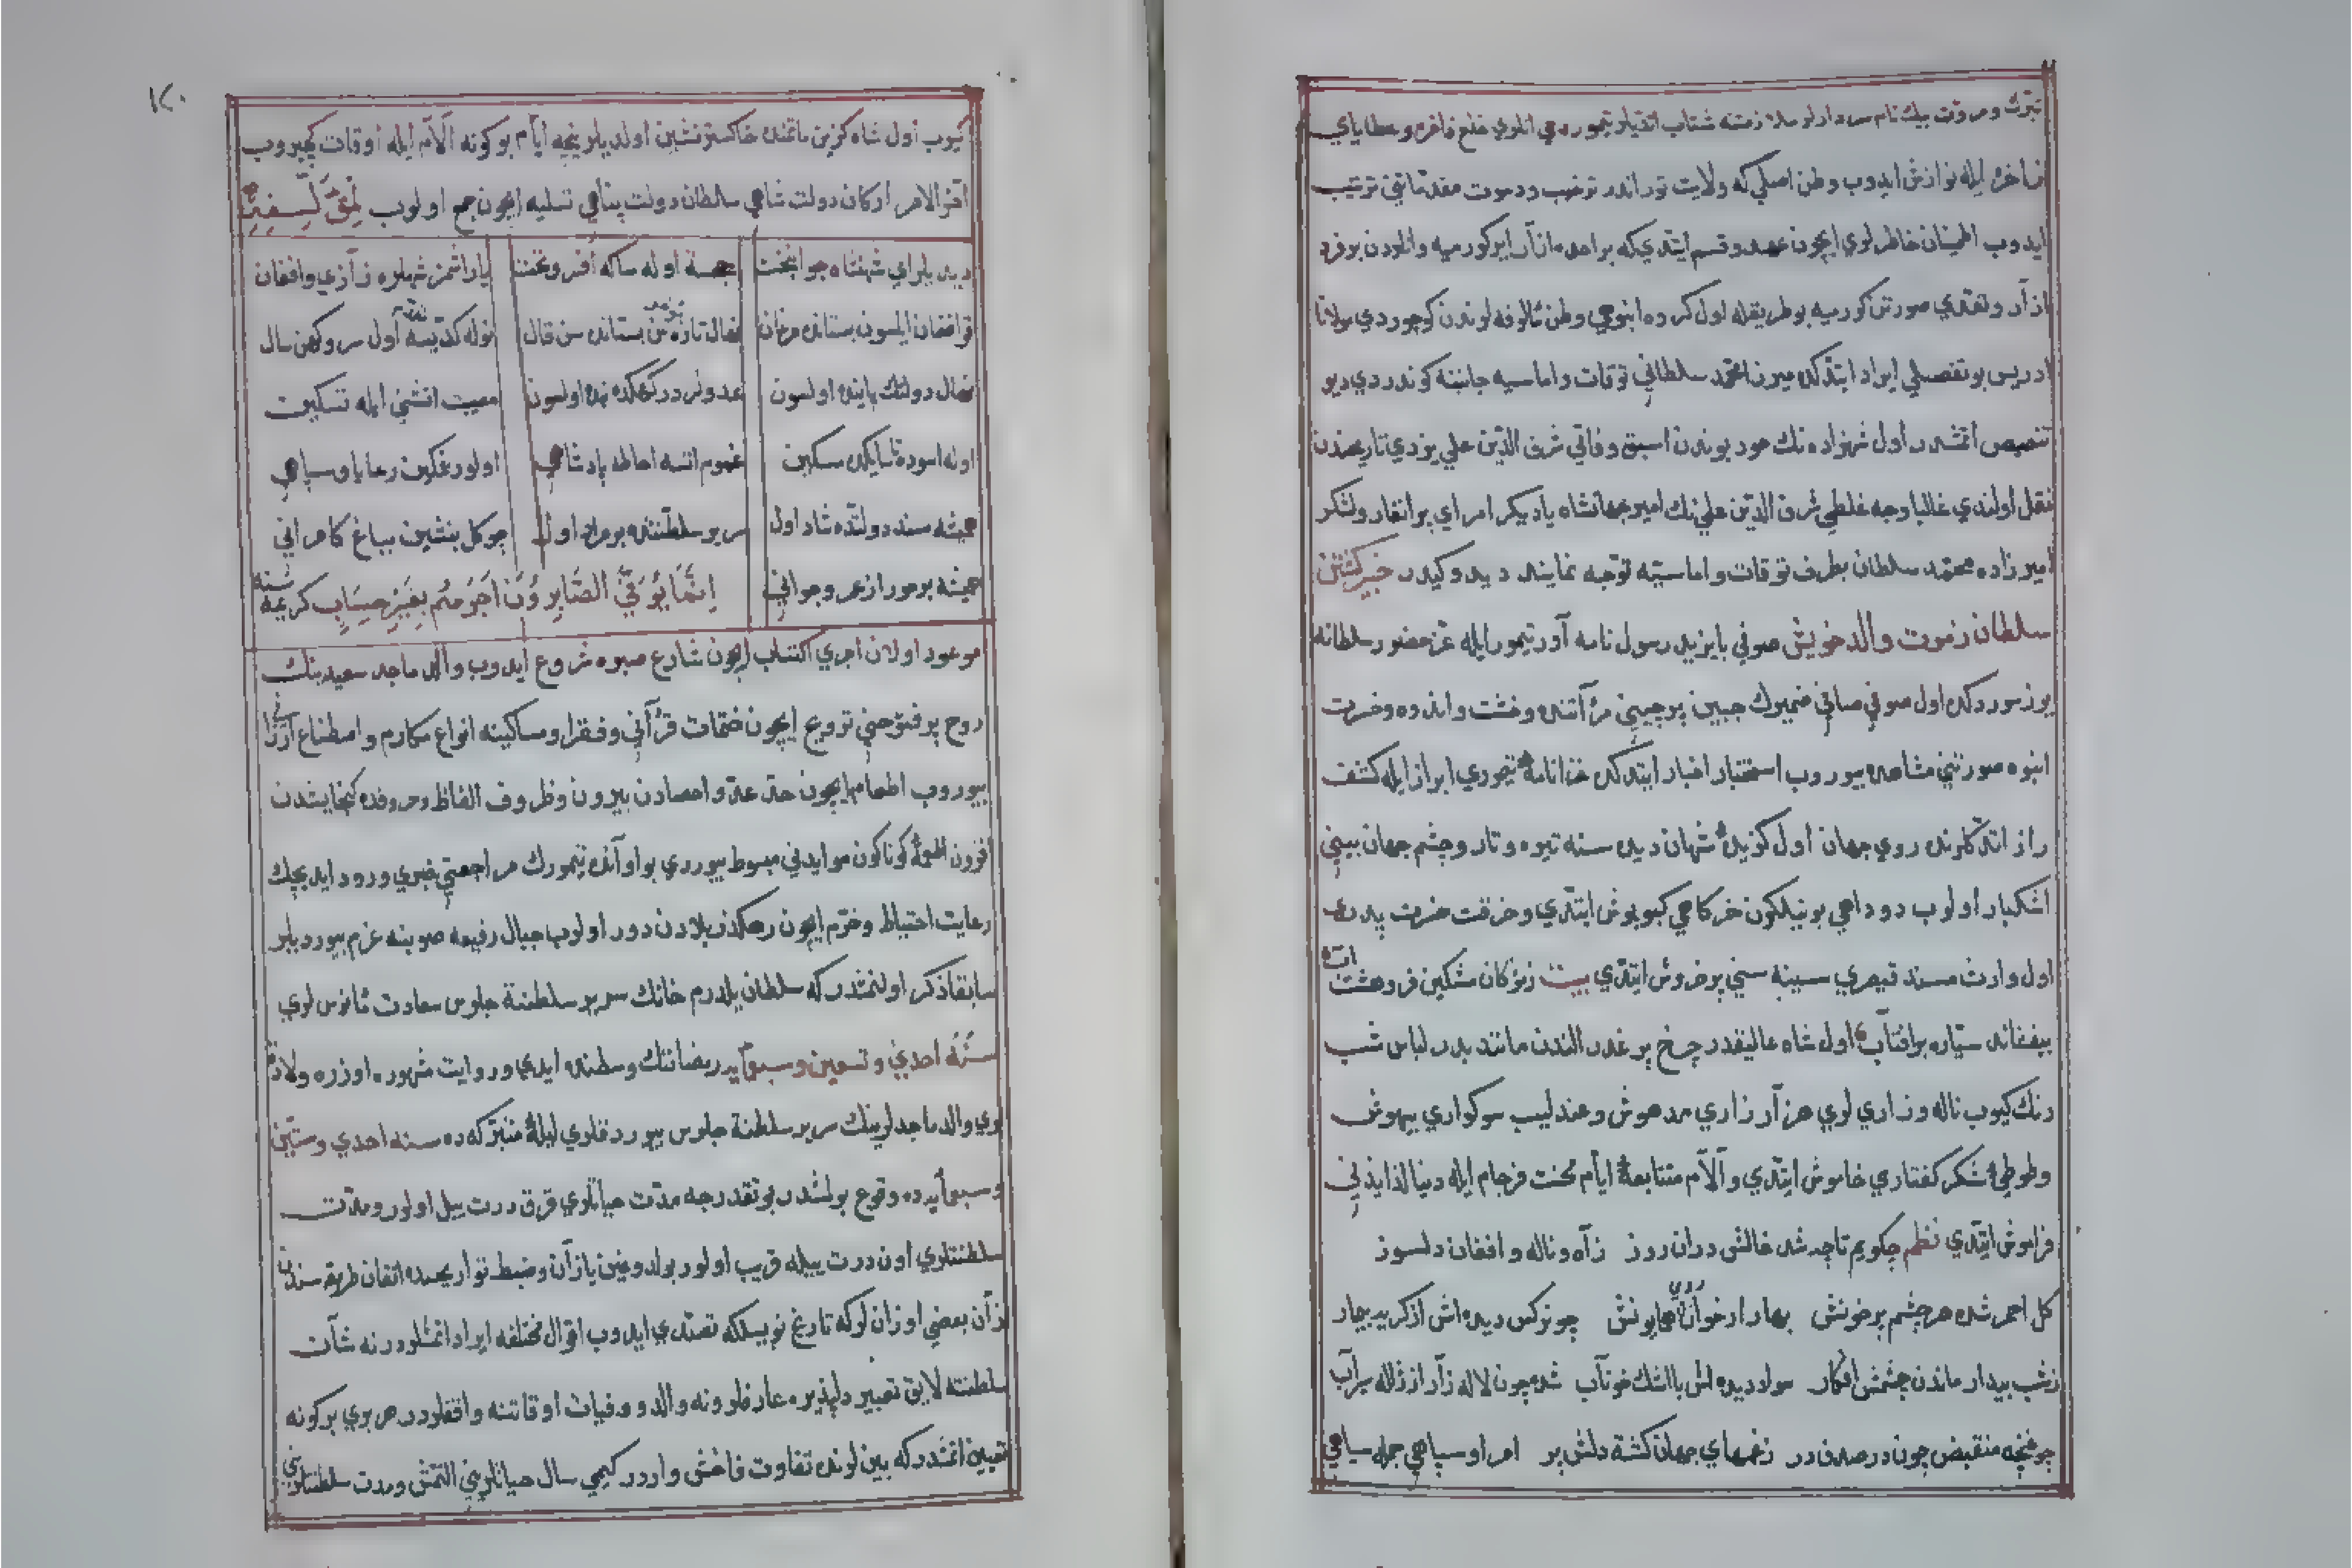 تبرك ومروت بيك نام سردارلر ملازمته شتاب اتديلر تيمور دخي انلري خلع فاخره وعطاياي
فاخره ايله نوازش ايدوب وطن اصلي كه ولايت توراندر ترغيب ودعوت مقدماتني ترتيب
ايدوب اطمينان خاطرلري ايچون عهد وقسم ايتدي كه براحده ازار ايركورميه وانلردن بر فرد
ازار وتعدي صورتن كورميه بو طريقله اول كروه انبوهي وطن مالوفه لرندن كوچوردي مولانا
ادريس بو تفصيلي ايراد ايتدكده ميرزا محمد سلطاني توقات واماسيه جانبنه كوندردي ديو
تنصيص اتمشدر اول شهزاده نك خود بوندن اسبق وفاتي شرف الدين علي يزدي تاريخندن
نقل اولندي غالبا وجه غلطي شرف الدين علي نك امير جهانشاه باديكر امراي برانغار ولشكر
امير زاده محمد سلطان بطرف توقات واماسيه توجه نمايند ديدوكيدر خبر كشتن
سلطان زموت والد خويش صوفي بايزيد رسول نامه آور تيمور ايله عز حضور سلطانه
يوز سوردكده اول صوفي صافي ضميرك جبين پرچيني مرآتنده وحشت واندوه وحسرت
انبوه صورتني مشاهده بيوروب استخبار اخبار ايتدكده عزانامهٔ تيموري ابراز ايله كشف
راز اتدكلرنده روي جهان اول كزيدهٔ شهان ديده سنه تيره وتار وچشم جهان بيني
اشكبار اولوب دود اهي بو نيلكون خركاهي كبود پوش ايتدي وحرقت حسرت پدري
اول وارث مسند قيصري سينه سني پرخروش ايتدي بيت زمژكان مشكين فروهشت آب
بيفشاند سياره برافتاب اول شاه عاليقدر چرخ پر غدر الندن مانند بدر لباس شب
رنك كيوب ناله وزاري لري هزار زاري مدهوش وعندليب سوكواري بيهوش
وطوطئ شكر كفتاري خاموش ايتدي وآلام متتابعهٔ ايام محنت فرجام ايله دنيا لذايذني
فراموش ايتدي نظم چكويم تاچه شد حالش دران روز زآه وناله وافغان دلسوز
كل احمر شده هر چشم پرخونش بهار ارغوان روي همايونش چو نركس ديده اش از كريه بيمار
زشب بيدار ماندن چشمش افكار سواد ديده اش با اشك خوناب شده چون لاله زار از ژاله سيراب
چو غنچه منقبض چون در صدف در زغمهاي جهان كشته دلش پر امر او سپاهي جمله سياهي
كيوب اول شاه كزين ماتمنده خاكستر نشين اولديلر نيجه ايام بو كونه آلام ايله اوقات كچيروب
آخر الامر اركان دولت شاهي سلطان دولت پناهي تسليه ايچون جمع اولوب
ديديلر اي شهنشاه جوانبخت خجسته اوله ساكه افسر وتخت ياراشمز شهلره زاري وافغان
قو افغان ايلسون بستانده مرغان نهال تازه سن بستانده سن قال نوله كتديسه اول سرو كهن سال
نهال دولتك پاينده اولسون عدولر دركهكده بنده اولسون مصيبت اتشني ايله تسكين
اوله اسوده تا سايكده مسكين غموم اتسه احاطه پادشاهي اولور غمكين رعايا وسپاهي
هميشه مسند دولتده شاد اول سرير سلطنتده بر مراد اول چو كل بنشين بباغ كامراني
هميشه برخور از عمر وجواني اِنَّمَا يُوَفَّى الصَّابِرُونَ اَجْرَهُمْ بِغَيْرِ حِسَابٍ كريمه سنده
موعود اولان اجري اكتساب ايچون شارع صبره شروع ايدوب والد ماجد سعيدينك
روح پر فتوحني ترويح ايچون ختمات قرآني وفقرا ومساكينه انواع مكارم واصطناع ارزاني
بيوروب اطعام ايچون حد عد واحصادن بيرون وظروف الفاظ وحروفده كنجايشدن
افزون اطعمهٔ كوناكون موايدني مبسوط بيوردي بو اوآنده تيمورك مراجعتي خبري ورود ايديجك
رعايت احتياط وحزم ايچون رهكذر بلادن دور اولوب جبال رفيعه صوبنه عزم بيورديلر
سابقا ذكر اولنمشدر كه سلطان يلدرم خانك سرير سلطنة جلوس سعادت مانوس لري
سنهٔ احدي وتسعين وسبعمايه رمضاننك وسطنده ايدي وروايت مشهوره اوزره ولادت
لري والد ماجدلرينك سرير سلطنة جلوس بيوردقلري ليلهٔ متبركه ده سنه احدي وستين
وسبعمايه ده وقوع بولمشدر بو تقدرجه مدت حياتلري قرق درت ييل اولور ومدت
سلطنتلري اون درت ييله قريب اولور بولدوغين يازان وضبط تواريخده اتقان طريقه سنده
زان بعضي اوزانلر كه تاريخ نويسلكه تصدي ايدوب اقوال مختلفه ايراد اتمشلردر نه شان
سلطنته لايق تعبير دلپذيره عارفلر ونه والد ووفيات اوقاتنه واقفلردر هر بري بر كونه
تعيين اتمشدر كه بينلرنده تفاوت فاحش واردر كيمي سال حياتلريني التمش ومدت سلطنتلريني